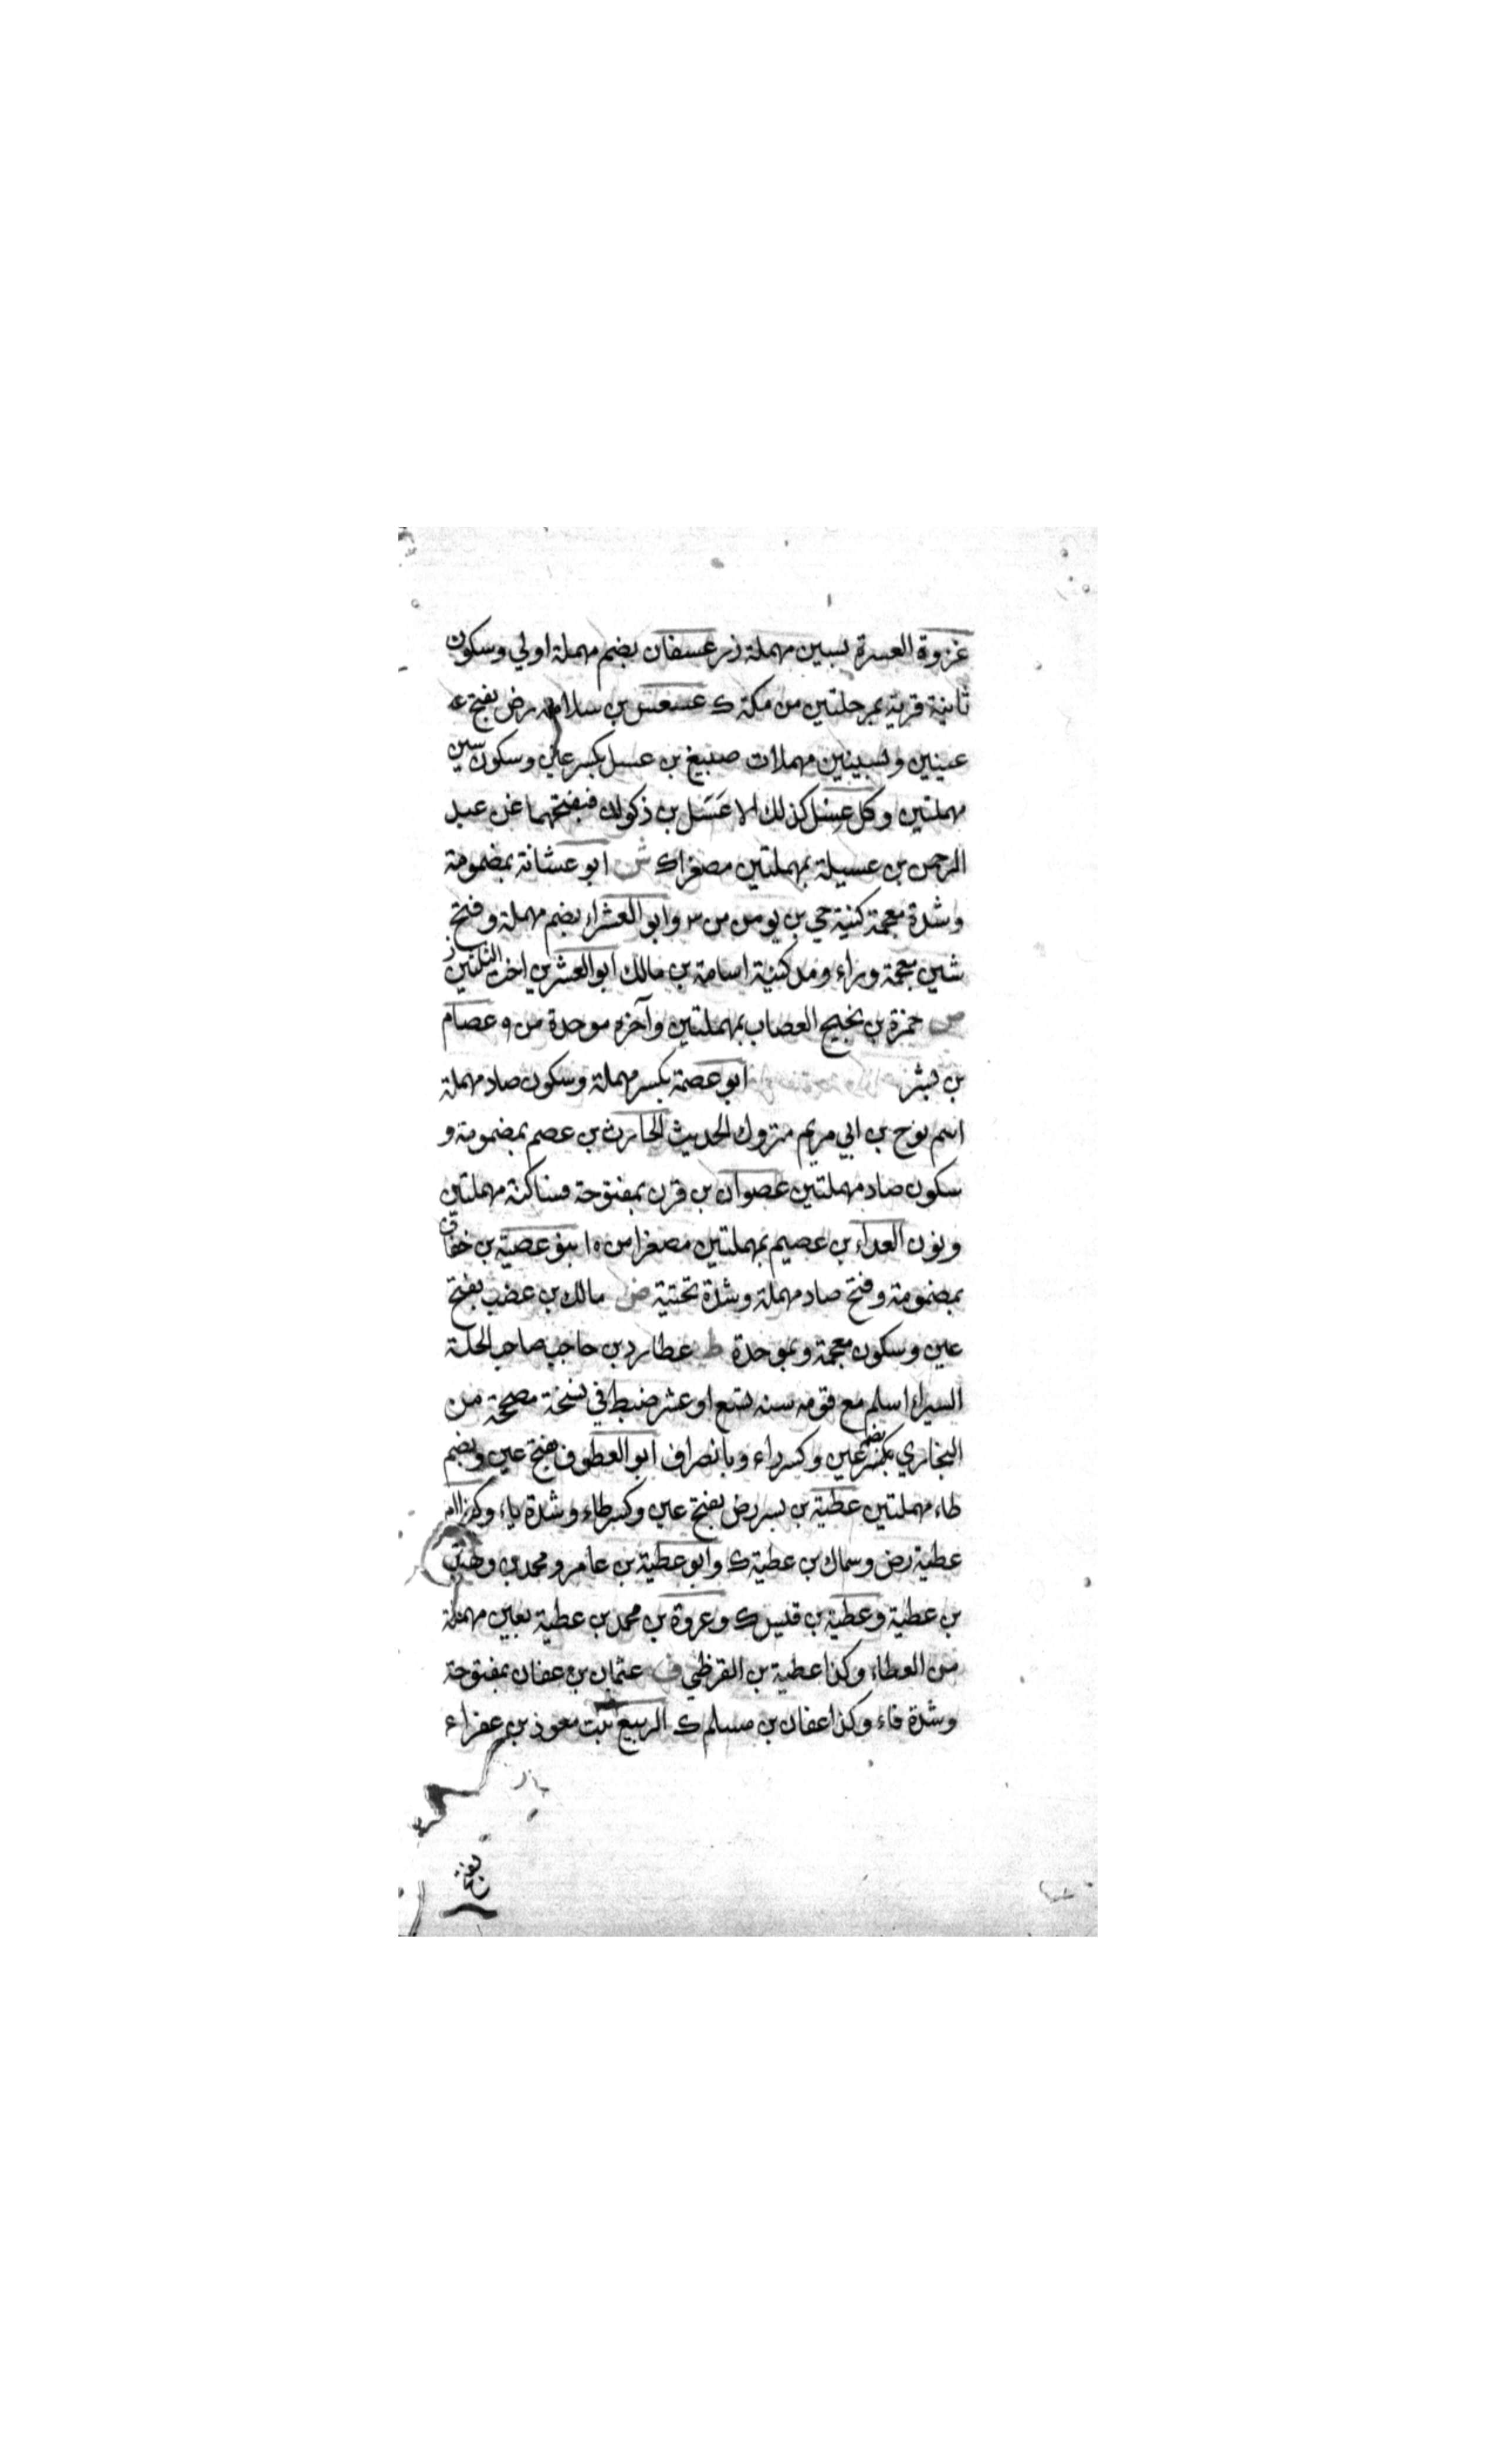 غزوة العسرة بسين مهملة زر عسفان بضم مهملة اولي وسكون
ثانية قرية بمرحلتين من مكة ك عسعس بن سلامة رض بفتح
عينين وبسينين مهملات صبيغ بن عسل بكسر عين وسكون سين
مهملتين وكل عسل كذلك الا عَسَل بن ذكوان فبفتحهما غن عبد
الرحمن بن عسيلة بمهملتين مصغرا ك ش ابو عشانة بمضمومة
وشدة معجمة كنية حي بن يومن من م وابو العشراء بضم مهملة وفتح
شين معجمة وراء ومد كنية اسامة بن مالك ابو العشرين اخت الثلثين ز
ص حمزة بن نجيح العصاب بمهملتين وآخره موحدة من و عصام
بن بشر ابو عصمة بكسر مهملة وسكون صاد مهملة
اسم نوح بن ابي مريم متروك الحديث الحارث بن عصم بمضمومة و
سكون صاد مهملتين عصوان بن قرن بمفتوحة فساكنة مهملتين
ونون العداء بن عصيم بمهملتين مصغرا من ه ا بنو عصية بن خفاف
بمضمومة وفتح صاد مهملة وشدة تحتية ض مالك بن عضب بفتح
عين وسكون معجمة وبموحدة ط عطارد بن حاجب صاحب الحلة
السيراء اسلم مع قومه سنه تسع او عشر ضبط في نسخة مصححة من
البخاري بكسر بضم عين وكسر راء وبانصراف ابو العطوف بفتح عين وبضم
طاء مهملتين عطية بن بسر رض بفتح عين وكسر طاء وشدة ياء وكذا ام
عطية رض وسماك بن عطية ك وابو عطية بن عامر ومحمد بن وهب
بن عطية وعطية بن قيس ك وعروة بن محمد بن عطية بعين مهملة
من العطاء وكذا عطية بن القرظي ف عثمان بن عفان بمفتوحة
وشدة فاء وكذا عفان بن مسلم ك الربيع بنت معوذ بن عفراء
بفتح